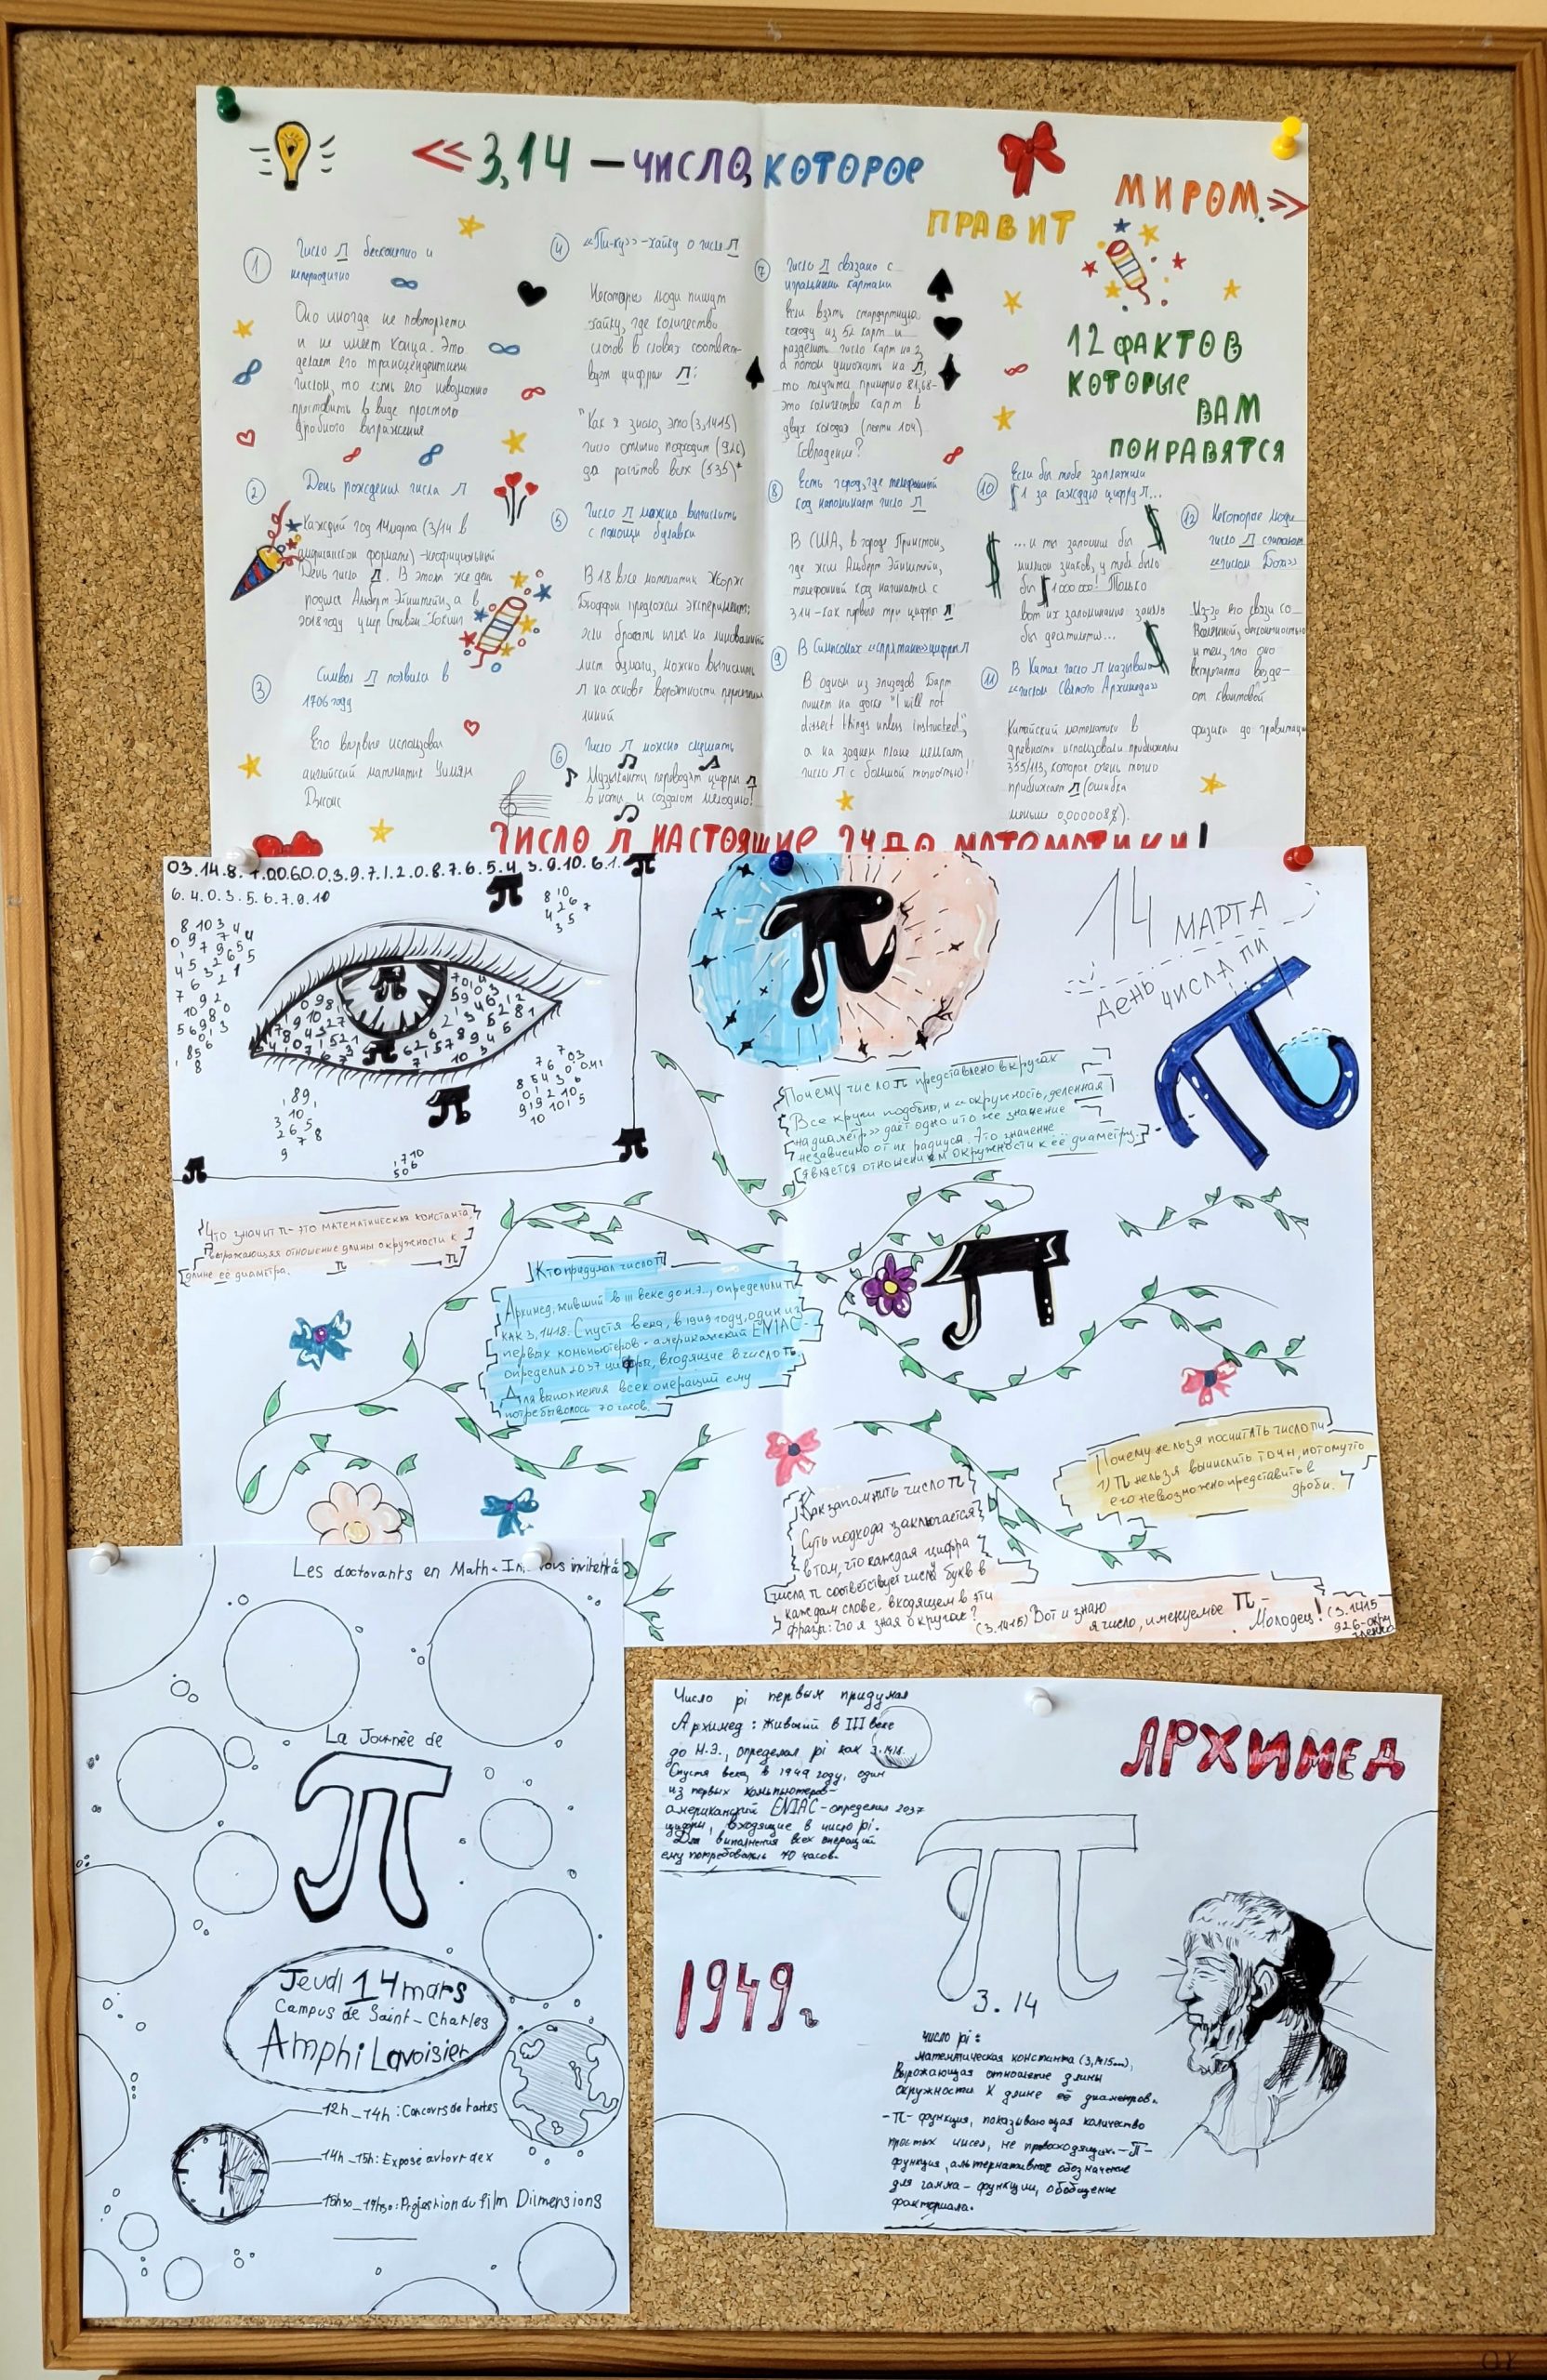 «3,14 — ЧИСЛО, КОТОРОЕ
ПРАВИТ
МИРОМ.»
12 ФАКТОВ
КОТОРЫЕ
ВАМ
ПОНРАВЯТСЯ
1
Число π бесконечно и
непериодично
Оно никогда не повторяется
и не имеет конца. Это
делает его трансцендентным
числом, то есть его невозможно
представить в виде простого
дробного выражения
2
День рождения числа π
Каждый год 14 марта (3/14 в
американском формате) - неофициальный
День числа π. В этот же день
родился Альберт Эйнштейн, а в
2018 году умер Стивен Хокинг
3
Символ π появился в
1706 году
Его впервые использовал
английский математик Уильям
Джонс
4
«Пи-ку» - хайку о числе π
Некоторые люди пишут
хайку, где количество
слогов в словах соответс-
вует цифрам π:
"Как я знаю, это (3,1415)
число отлично подходит (926)
да расчётов всех (535)"
5
Число π можно вычислить
с помощи булавки
В 18 веке математик Жорж
Бюффон предложил эксперимент:
если бросать иглы на линованный
лист бумаги, можно вычислить
π на основе вероятности пересечения
линий
6
Число π можно слушать
Музыканты переводят цифры π
в ноты и создают мелодию!
7
Число π связано с
игральными картами
Если взять стандартную
колоду из 52 карт и
разделить число карт на 2,
а потом умножить на π,
то получится примерно 81,68-
это количество карт в
двух колодах (почти 104)
Совпадение?
8
Есть город, где телефонный
код напоминает число π
В США, в городе Принстон,
где жил Альберт Эйнштейн,
телефонный код начинается с
314 - как первые три цифры π
9
В Симпсонах «спрятаны» цифры π
В одном из эпизодов Барт
пишет на доске "I will not
dissect things unless instructed",
а на заднем плане мелькает
число π с большой точностью!
10
Если бы тебе заплатили
$1 за каждую цифру π...
...и ты запомнил бы
миллион знаков, у тебя было
бы $1000000! Только
вот их запоминание заняло
бы десятилетия...
11
В Китае число π называли
«числом Святого Архимеда»
Китайский математики в
древности использовали приближение
355/113, которое очень точно
приближает π (ошибка
меньше 0,000008%).
12
Некоторые люди
число π считают
«числом Бога»
Из-за его связи со
Вселенной, бесконечностью
и тем, что оно
встречается везде-
от квантовой
физики до гравитации
ЧИСЛО π НАСТОЯЩИЕ ЧУДО МАТЕМАТИКИ!
6.4.0.3.5.6.7.9.10
14 МАРТА
ДЕНЬ ЧИСЛА ПИ
Почему число π представлено в кругах
Все круги подобны, и «окружность, деленная
на диаметр» дает одно и то же значение
независимо от их радиуса. Это значение
является отношением окружности к её диаметру.
Что значит π - это математическая константа,
выражающая отношение длины окружности к
длине её диаметра.
π π
Кто придумал число π
Архимед, живший в III веке до н.э., определил π
как 3,1418. Спустя века, в 1949 году, один из
первых компьютеров - американский ENIAC -
определил 2037 цифры, входящие в число π.
Для выполнения всех операций ему
потребывалось 70 часов.
Почему нельзя посчитать число пи
1) π нельзя вычислить точн, потому что
его невозможно представить в
дроби.
Как запомнить число π
Суть подхода заключается
в том, что каждая цифра
числа π соответствует числу букв в
каждам слове, входящем в эти
фразы: Что я зная о кругах? (3.1415) Вот и знаю
я число, именуемое π -
Молодец! (3.1415
926-окру
гленно
Les doctorants en Math-In. vous invitent à
La Journée de
π
Jeudi 14 mars
Campus de Saint-Charles
Amphi Lavoisier
12h_14h: Concours de tartes
14h_15h: Exposé autour de x
15h30_17h30: Projection du film Diimensions
Число pi первым придумал
Архимед: живший в III веке
до Н.Э., определял pi как 3.1418.
Спустя века, в 1949 году, один
из первых компьютеров-
американский ENIAC - определил 2037
цифры, входящие в число pi.
Для выполнения всех операций
ему потребовалось 70 часов.
АРХИМЕД
π
3.14
1949г
число pi:
математическая константа (3,1415...),
Выражающая отношение длины
окружности к длине её диаметров.
- π - функция, показывающая количество
простых чисел, не превосходящих. - П -
функция, альтернативное обозначение
для гамма - функции, обобщение
факториала.